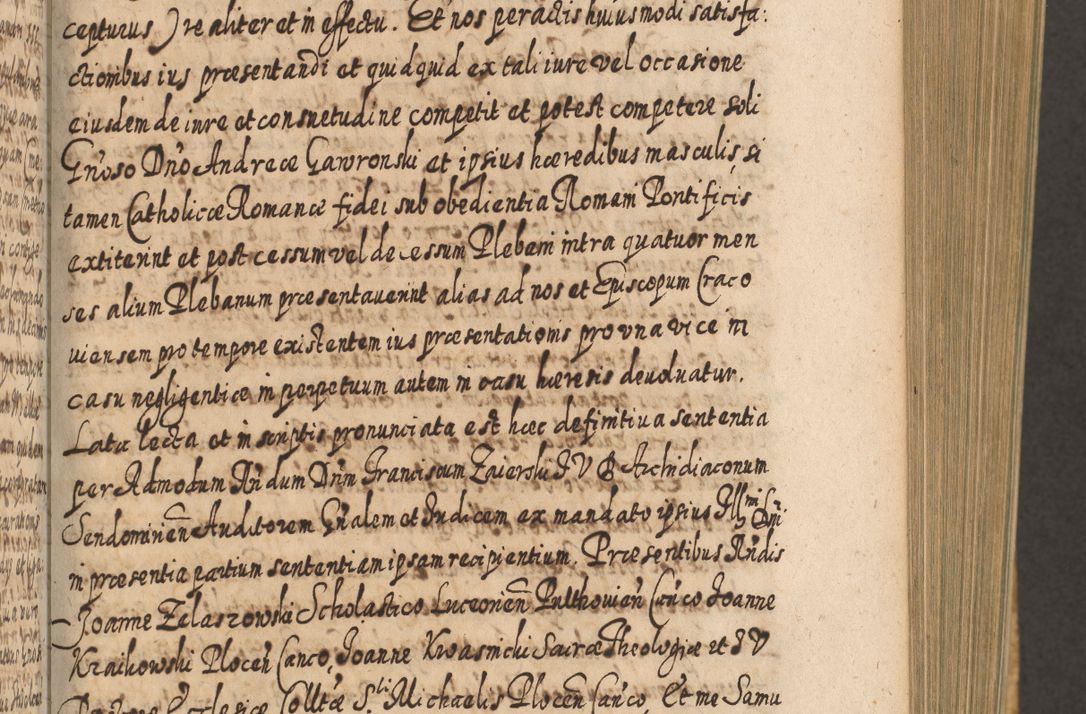 cepturus) realiter et in effectu. Et nos peractis huiusmodi satisfa:
ctionibus ius præsentandi et quidquid ex tali iure vel occasione
eiusdem de iure et consuetudine competit et potest competere soli
Gn̄oso Dn̄o Andreæ Gawronski et ipsius hæredibus masculis, si
tamen Catholicæ Romanæ fidei sub obedientia Romani Pontificis
extiterint et post cessum vel decessum Plebani intra quatuor men
ses alium Plebanum præsentauerint alias ad nos et Episcopum Craco
uiensem pro tempore existentem ius præsentationis pro vna vice in
casu negligentiæ in perpetuum autem in casu hæresis deuoluatur.
Lata lecta et in scriptis pronunciata est hæc definitiua sententia
per Admodum Rn̄dum Dn̄m Franciscum Zaierski I V D Archidiaconum
Sendomirien̄ Auditorem Gn̄alem et Iudicem ex mandato ipsius Illmi Dn̄i
in præsentia partium sententiam ipsam recipientium. Præsentibus Rn̄dis
Joanne Zelaszowski Scholastico Luceorien̄ Pulthouien̄ Can̄co Joanne
Kraikowski Plocen̄ Canco, Joanne Kwasnicki Sacræ Theologiæ et I V
Ecclesiæ Colltæ S.ti Michaelis Plocen̄ Can̄co, Et me Samu